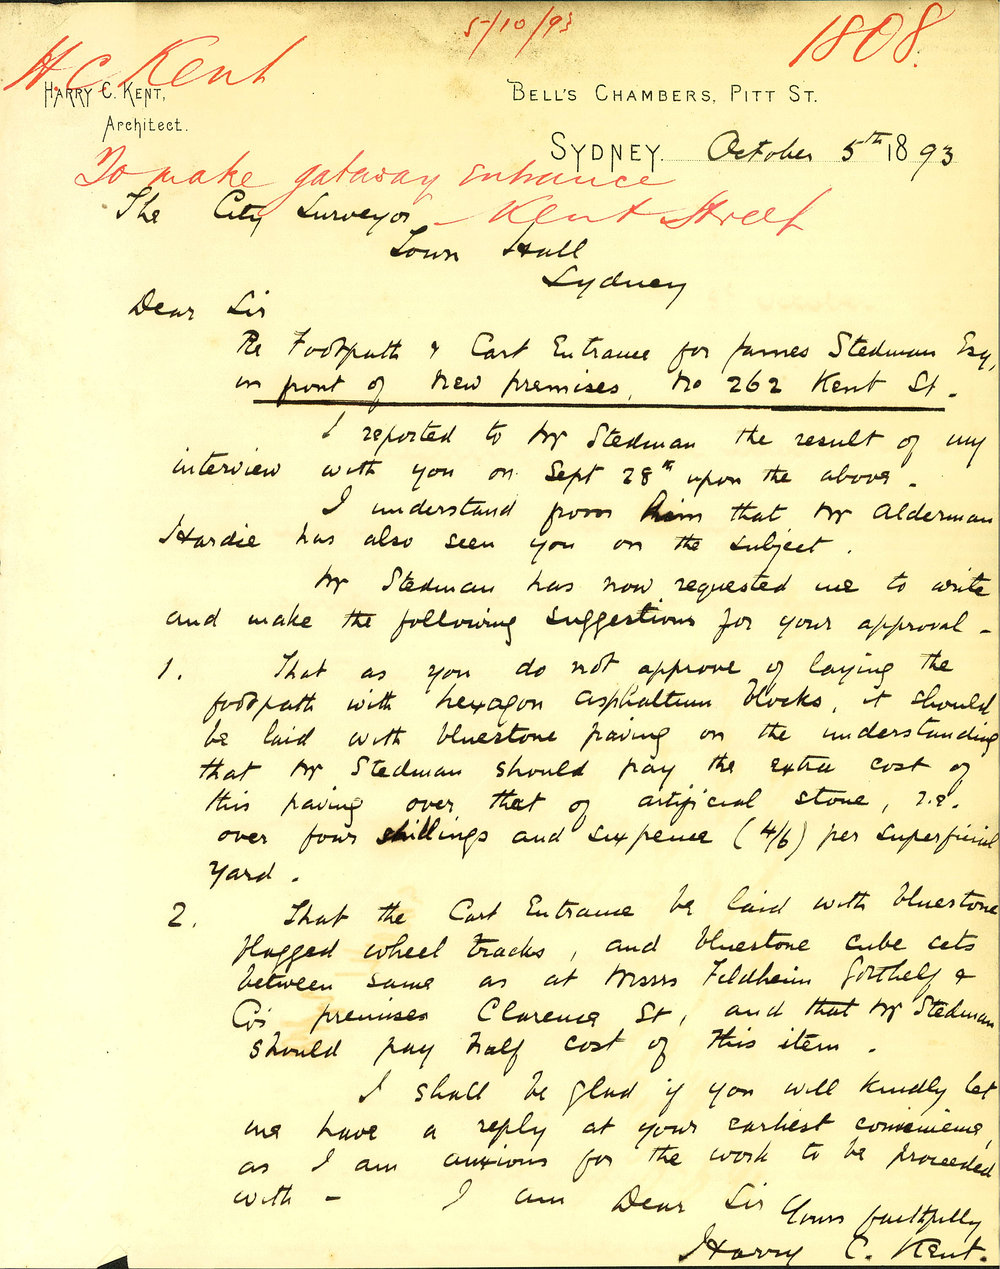 5/10/93
1808.
H.C. Kent
HARRY C. KENT,
Architect.
BELL'S CHAMBERS, PITT ST.
SYDNEY. October 5th 1893
To make gateway entrance
Kent Street
The City Surveyor
Town Hall
Sydney
Dear Sir
Re Footpath & Cart Entrance for James Stedman Esq,
in front of new premises, No 262 Kent St.
I reported to Mr Stedman the result of my
interview with you on Sept 28th upon the above.
I understand from him that Mr Alderman
Hardie has also seen you on the subject.
Mr Stedman has now requested me to write
and make the following suggestions for your approval -
1. That as you do not approve of laying the
footpath with hexagon asphaltum blocks, it should
be laid with bluestone paving on the understanding
that Mr Stedman should pay the extra cost of
this paving over that of artificial stone, i.e.
over four shillings and sixpence (4/6) per superficial
yard.
2. That the Cart Entrance be laid with bluestone
flagged wheel tracks, and bluestone cube sets
between same as at Messrs Feldheim Gotthelf &
Co's premises Clarence St, and that Mr Stedman
should pay half cost of this item.
I shall be glad if you will kindly let
me have a reply at your earliest convenience,
as I am anxious for the work to be proceeded
with - I am Dear Sir
Yours faithfully
Harry C. Kent.